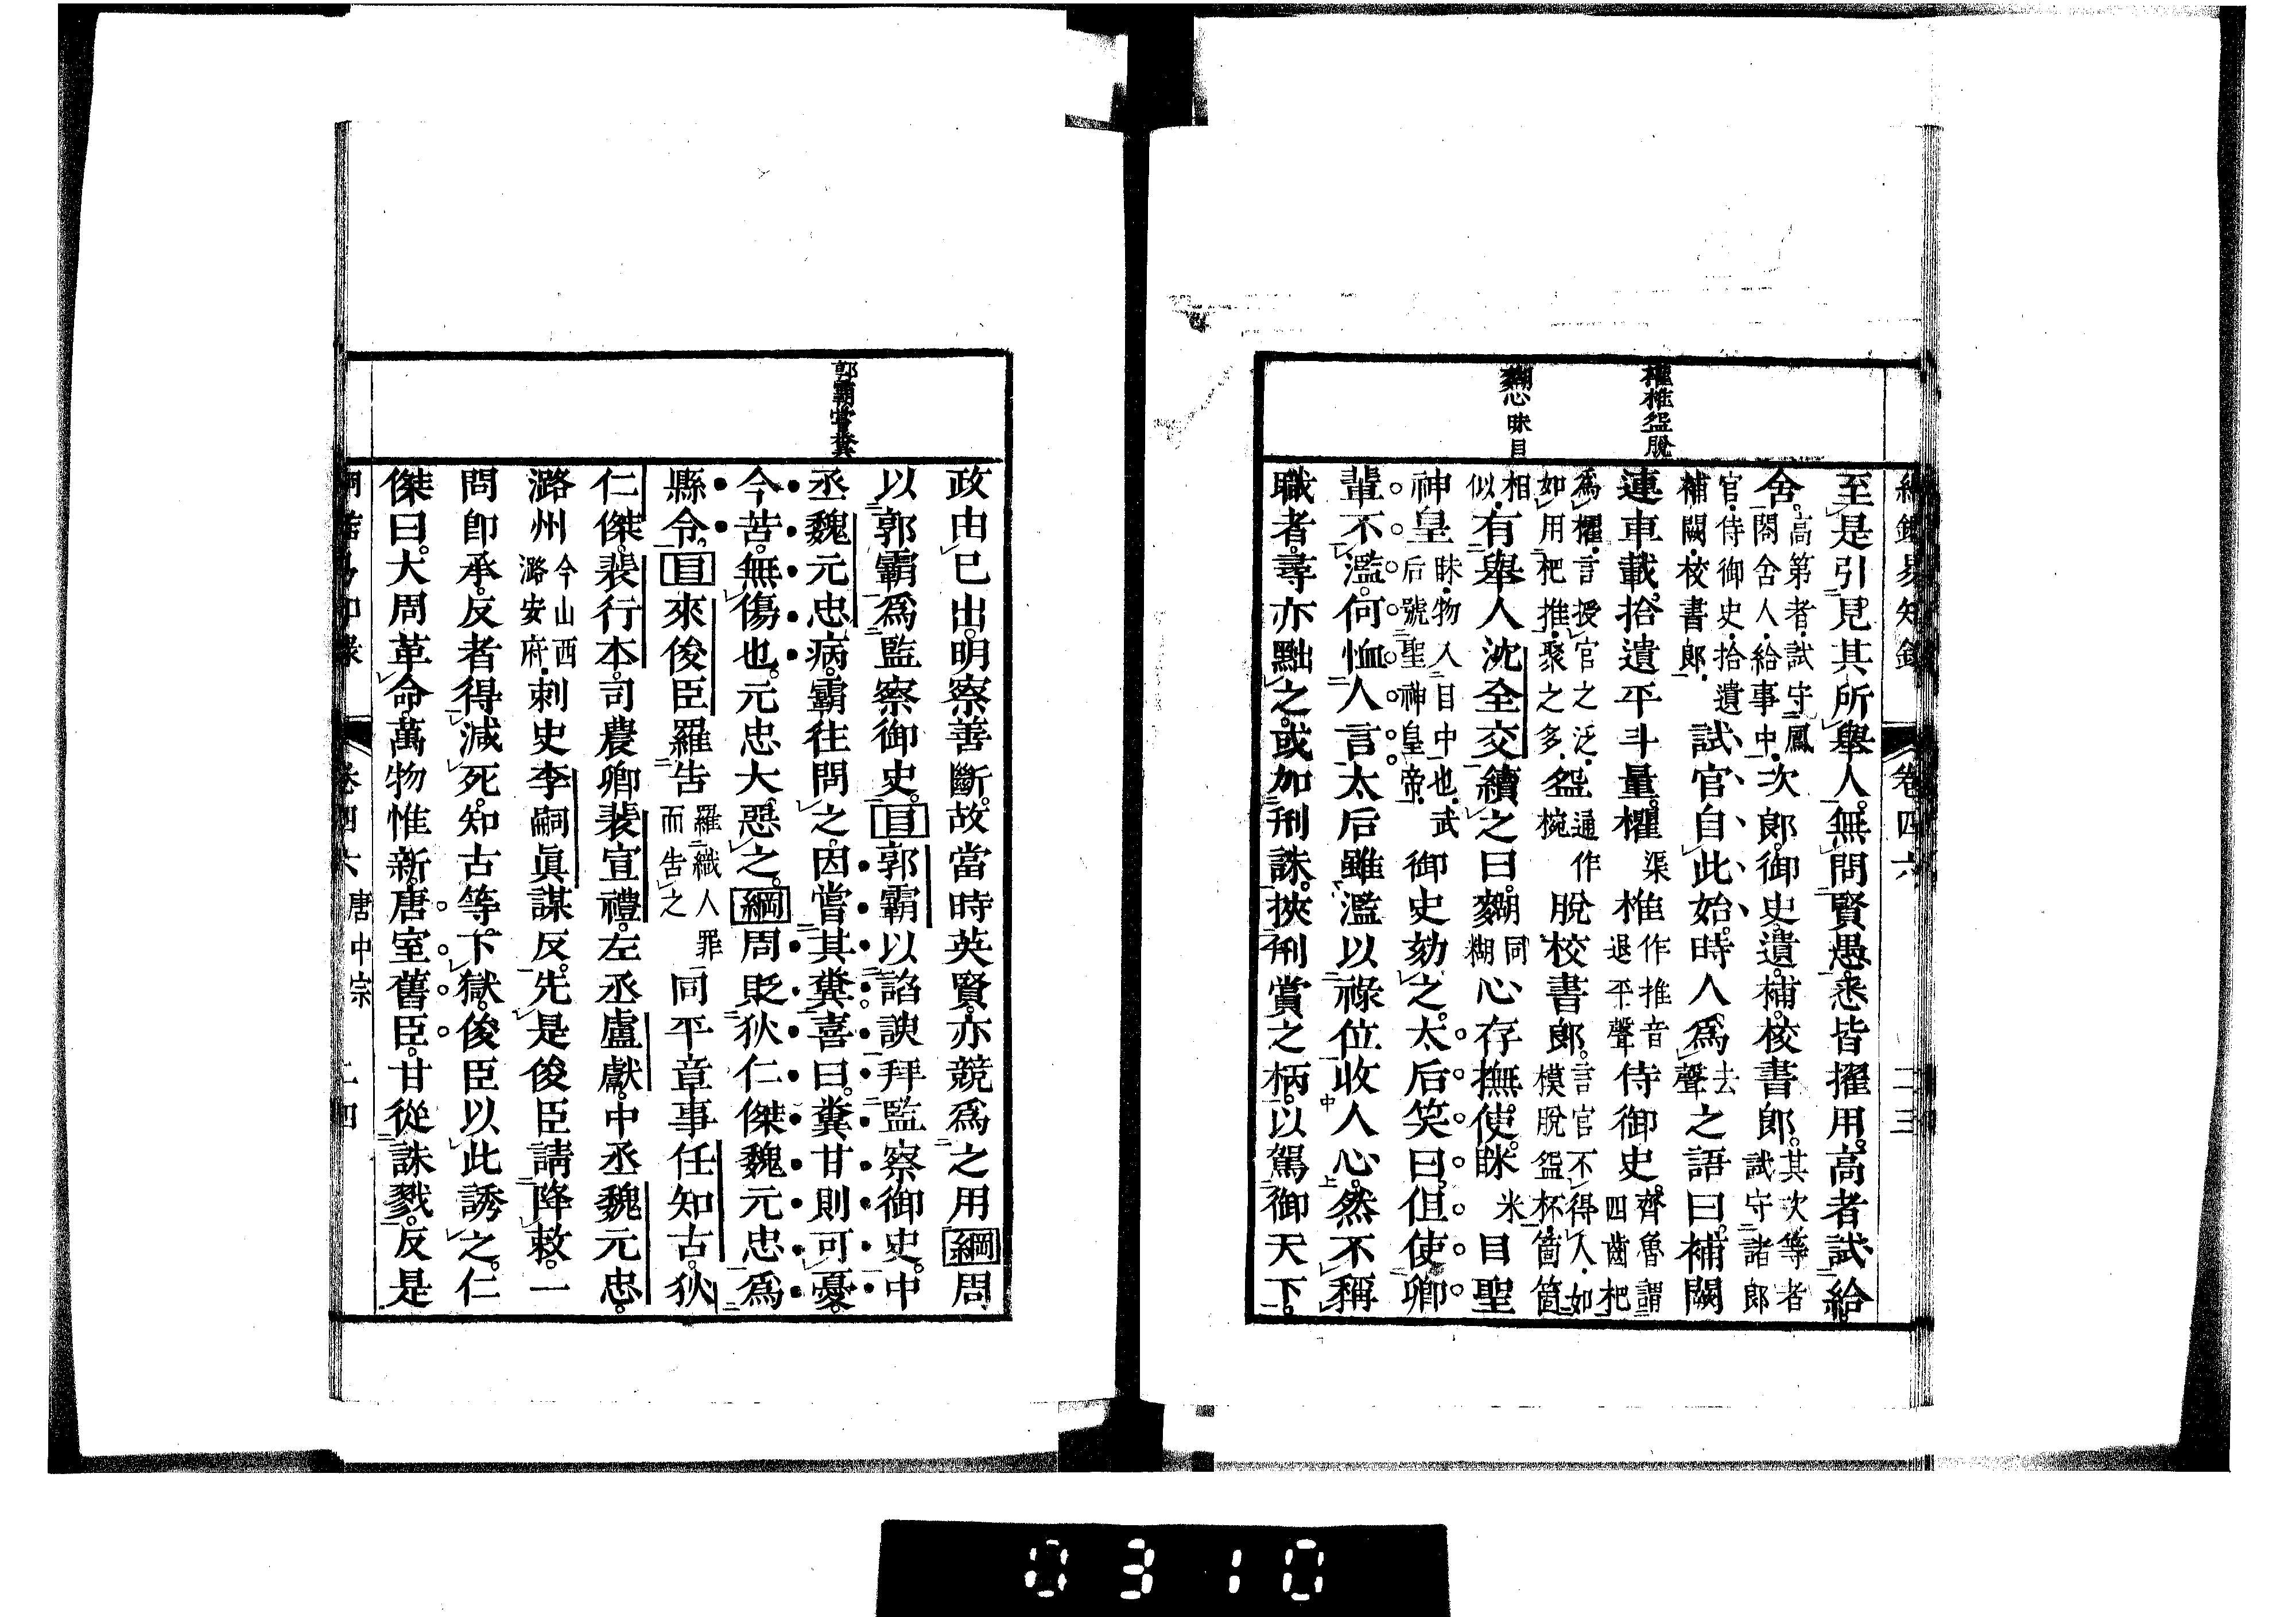 綱鑑易知錄 卷四六 二三
欋椎盌脫
麴心眯目
至是引見其所舉人。無問賢愚。悉皆擢用。高者試給
舍。高第者。試守鳳閣舍人。給事中。次郎。御史。遺。補。校書郎。其次等者試守諸郎官。侍御史。拾遺補闕。校書郎。試官自此始。時人爲去聲之語曰。補闕
連車載。拾遺平斗量。欋渠椎作推音退平聲侍御史。齊魯謂四齒杷爲欋。言授官之泛。如用杷推。聚之多。盌通作椀脫校書郎。言官不得人。如模脫盌杯。箇箇相似。
有舉人沈全交續之曰。麴糊同糊心存撫使。眯米目聖
神皇眯。物入目中也。武后號聖神皇帝。御史劾之。太后笑曰。但使卿
輩不濫。何恤人言。太后雖濫以祿位收人心。然不稱
職者。尋亦黜之。或加刑誅。挾刑賞之柄。以駕御天下。
郭霸嘗糞
政由已出。明察善斷。故當時英賢。亦競爲之用綱周
以郭霸爲監察御史。目郭霸以諂諛拜監察御史。中
丞魏元忠病。霸往問之。因嘗其糞喜曰。糞甘則可憂。
今苦。無傷也。元忠大惡之。綱周貶狄仁傑魏元忠爲
縣令。目來俊臣羅告羅織人罪而告之同平章事任知古。狄
仁傑。裴行本。司農卿裴宣禮。左丞盧獻。中丞魏元忠。
潞州今山西潞安府。刺史李嗣眞謀反。先是俊臣請降敕。一
問卽承。反者得減死。知古等。下獄。俊臣以此誘之。仁
傑曰。大周革命。萬物惟新。唐室舊臣。甘從誅戮。反是
綱鑑易知錄 卷四六 唐中宗 二四
0310